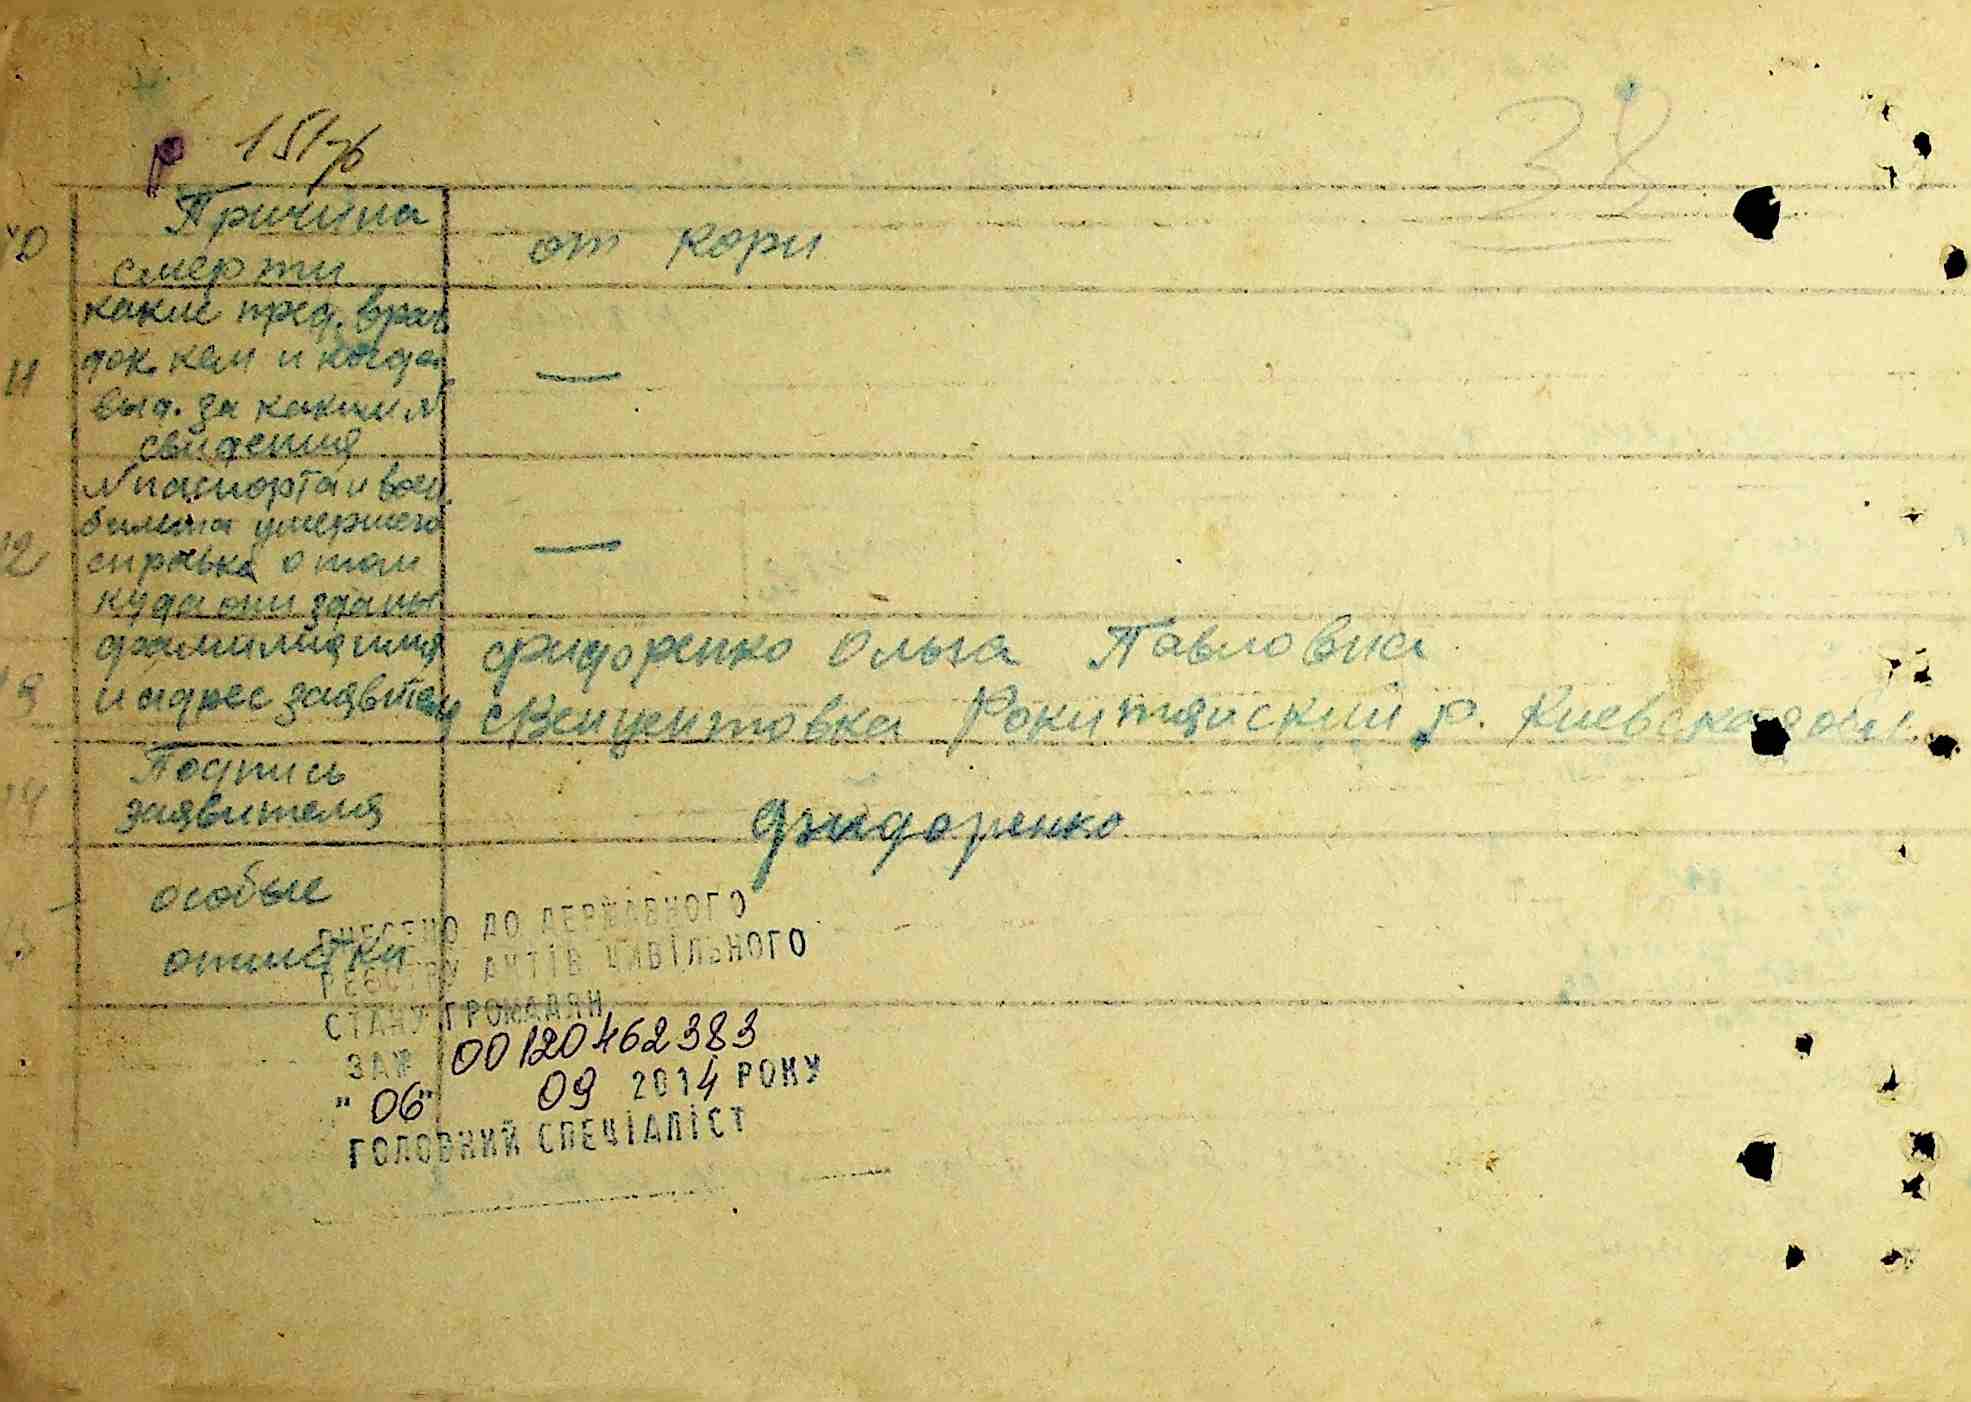 38
10 Причина
смерти
от кори
11 какие пред. врач.
док. кем и когда
выд. за каким №
свидения
—
12 № паспорта и воен.
билета умершего
справка о том
куда они зданы
—
13 фамилия имя
и адрес заявителя
Фидоренко Ольга Павловна
с Венцентовка Рокитянский р. Киевская обл.
14 Подпись
заявителя
Фидоренко
особые
отметки
ВНЕСЕНО ДО ДЕРЖАВНОГО
РЕЄСТРУ АКТІВ ЦИВІЛЬНОГО
СТАНУ ГРОМАДЯН
ЗА № 00120462383
"06" 09 2014 РОКУ
ГОЛОВНИЙ СПЕЦІАЛІСТ